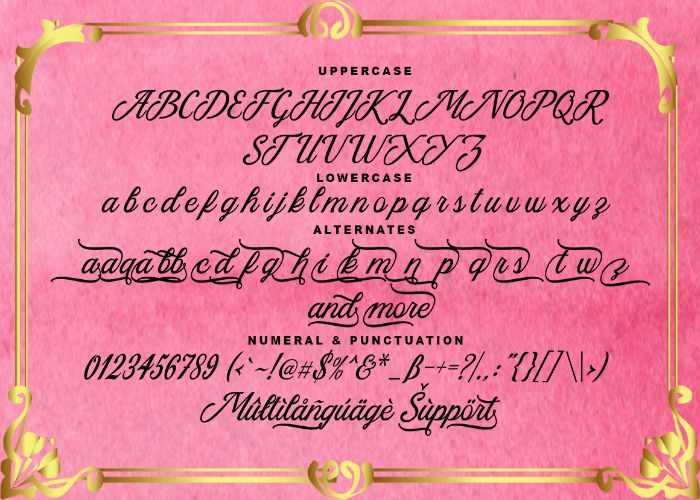 UPPERCASE
ABCDEFGHIJKLMNOPQR
STUVWXYZ
LOWERCASE
abcdefghijklmnopqrstuvwxyz
ALTERNATES
aaqabb cd fg h i k m n p q rs t w z
and more
NUMERAL & PUNCTUATION
0123456789 (<`~!@#$%^&*_ß-+=?/.,:"{}[]\|>)
Mûltîlåñgúägè Šùppört